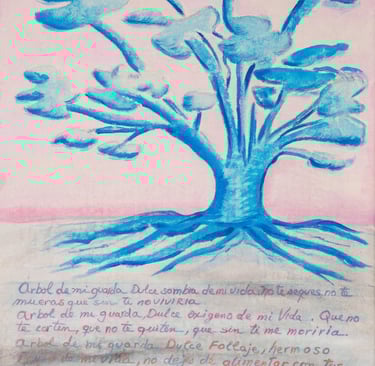 Arbol de mi guarda Dulce sombra de mi vida, no te seques no te
mueras que sin ti no VIVIRIA.
arbol de mi guarda, Dulce oxigeno de mi Vida. Que no
te corten, que no te quiten, que sin ti me moriria.
arbol de mi guarda Dulce Follaje, hermoso
de mi vida, no dejes de alimentar con tus